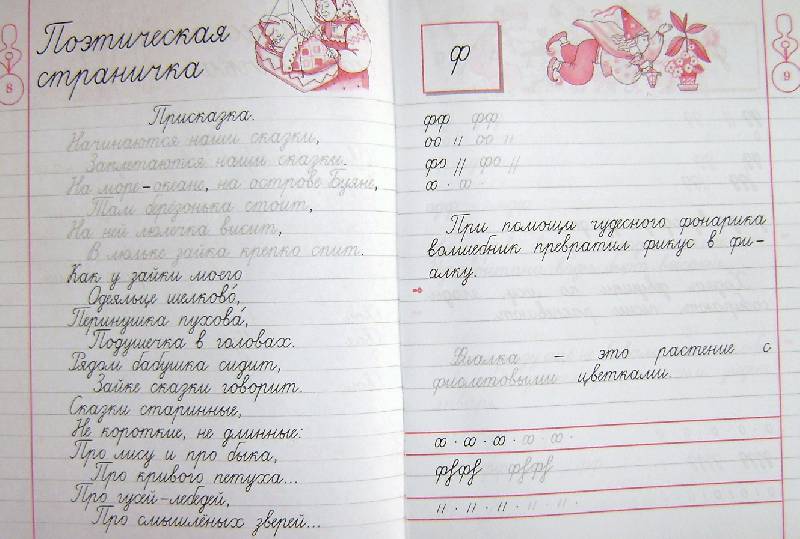 8
Поэтическая
страничка
Присказка.
Начинаются наши сказки,
Заплетаются наши сказки.
На море-океане, на острове Буяне,
Там берёзонька стоит,
На ней люлечка висит,
В люльке зайка крепко спит.
Как у зайки моего
Одеяльце шелково́,
Перинушка пухова́,
Подушечка в головах.
Рядом бабушка сидит,
Зайке сказки говорит.
Сказки старинные,
Не короткие, не длинные:
Про лису и про быка,
Про кривого петуха...
Про гусей-лебедей,
Про смышлёных зверей...
9
ф
фф фф
фо фо
При помощи чудесного фонарика
волшебник превратил фикус в фи-
алку.
Фиалка – это растение с
фиолетовыми цветками.